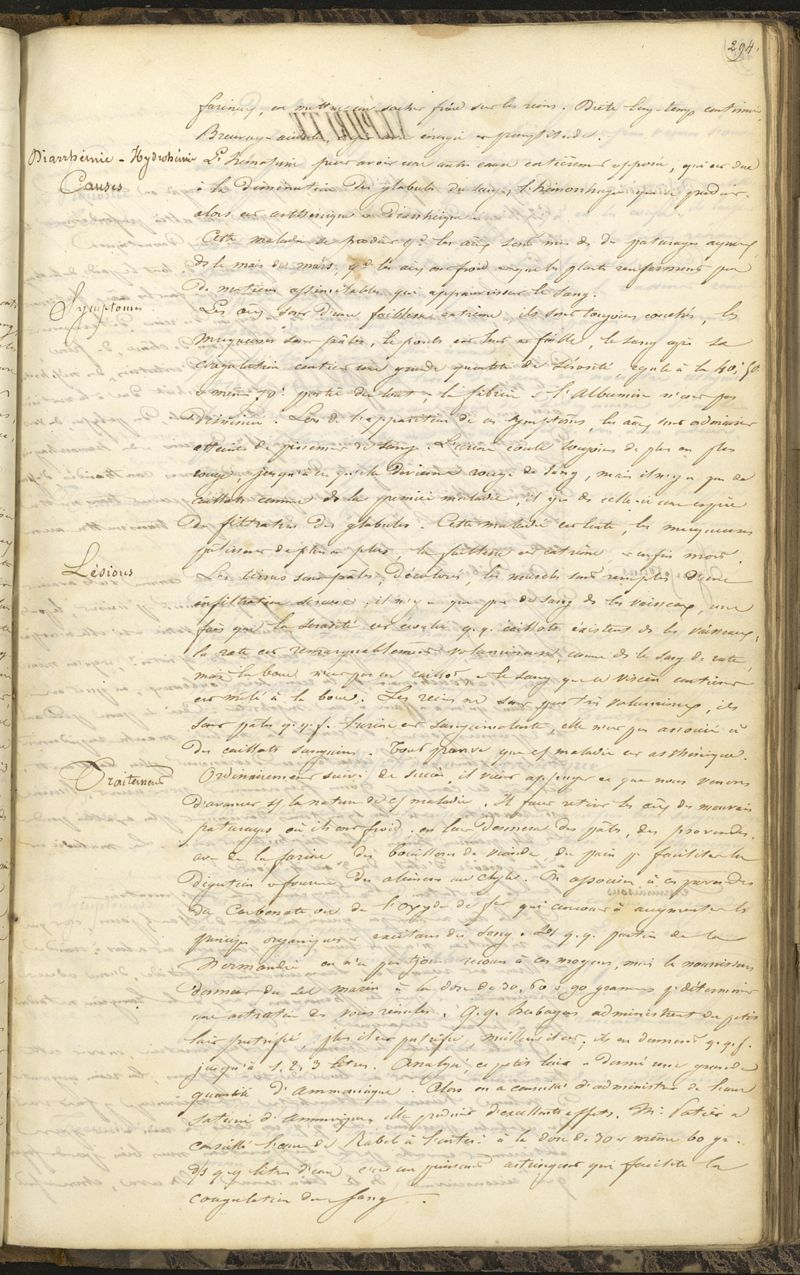 294.
farineux, en mettre un sachet froid sur les reins. Diète long-temps continuée
Breuvage
Diarrhémie - Hydrohémie
L'hématurie peut avoir une autre cause entièrement opposée, qui est due
Causes
à la diminution des globules du sang, l'hémorrhagie qui se produit
alors est asthénique
Cette maladie se produit qd les aux sont mis ds des paturages aqueux
ds le mois de mars, qd les aux ont froid les plantes renferment peu
de matières assimilables qui appauvrissent le sang.
Symptomes
Les aux sont d'une faiblesse extrême, ils sont toujours couchés, les
muqueuses sont pâles, le pouls est lent et faible, le sang après sa
coagulation contient une grande quantité de sérosité, égale à la 40, 50
et même 70e partie du tout, la fibrine et l'Albumine n'ont pas
diminué. Lors de l'apparition de ces symptômes, les aux sont ordinairement
atteints de pissement de sang. L'urine coule toujours de plus en plus
rouge jusqu'à ce qu'elle devienne rouge de sang, mais il n'y a pas de
caillots comme ds la première maladie, il y a ds celle-ci une espèce
de filtration des globules. Cette maladie est lente, les muqueuses
palissent de plus en plus, la faiblesse est extrême et enfin mort.
Lésions
Les tissus sont pâles, décolorés, les muscles sont remplis d'une
infiltration séreuse, il n'y a que peu de sang ds les vaisseaux, une
fois que la sérosité est écoulée q.q. caillots existent ds les vaisseaux,
la rate est remarquablement volumineuse, comme ds le sang de rate,
mais la boue n'est pas en caillot, et le sang que ce viscère contient
est mêlé à la boue. Les reins ne sont pas très volumineux, ils
sont pâles q.q.f. L'urine est sanguinolente, elle n'est pas associée à
des caillots sanguins. Tout prouve que cette maladie est asthénique.
Traitement
Ordinairement suivi de succès, il vient appuyer ce que nous venons
d'avancer sur la nature de cette maladie. Il faut retirer les aux des mauvais
paturages où ils ont froid, on leur donnera des pâtés, des provendes
avec de la farine des bouillons de viande, du pain pr faciliter la
digestion et fournir des alimens au chyle. On associera à ces provendes
du Carbonate ou de l'oxyde de fer qui concourt à augmenter les
principes organiques et excitans du sang. Ds q.q. parties de la
Normandie on n'a pas tjours recours à ces moyens, mais les nourrisseurs
donnent du sel marin à la dose de 30, 60 à 90 grammes pr déterminer
une astriction des voies rénales. q.q. herbagers administrent du petit
lait putréfié, plus il est putréfié, meilleur il est, ils en donnent q.q.f.
jusqu'à 1, 2, 3 litres. Analysé, ce petit lait a donné une grande
quantité d'ammoniaque. Alors on a conseillé d'administrer de l'eau
saturée d'ammoniaque, elle produit d'excellents effets. Mr
conseille l'eau de Rabel à l'intér. à la dose de 30 et même 60 gr.
ds q.q. litres d'eau, c'est un puissant astringent qui facilite la
coagulation du sang.